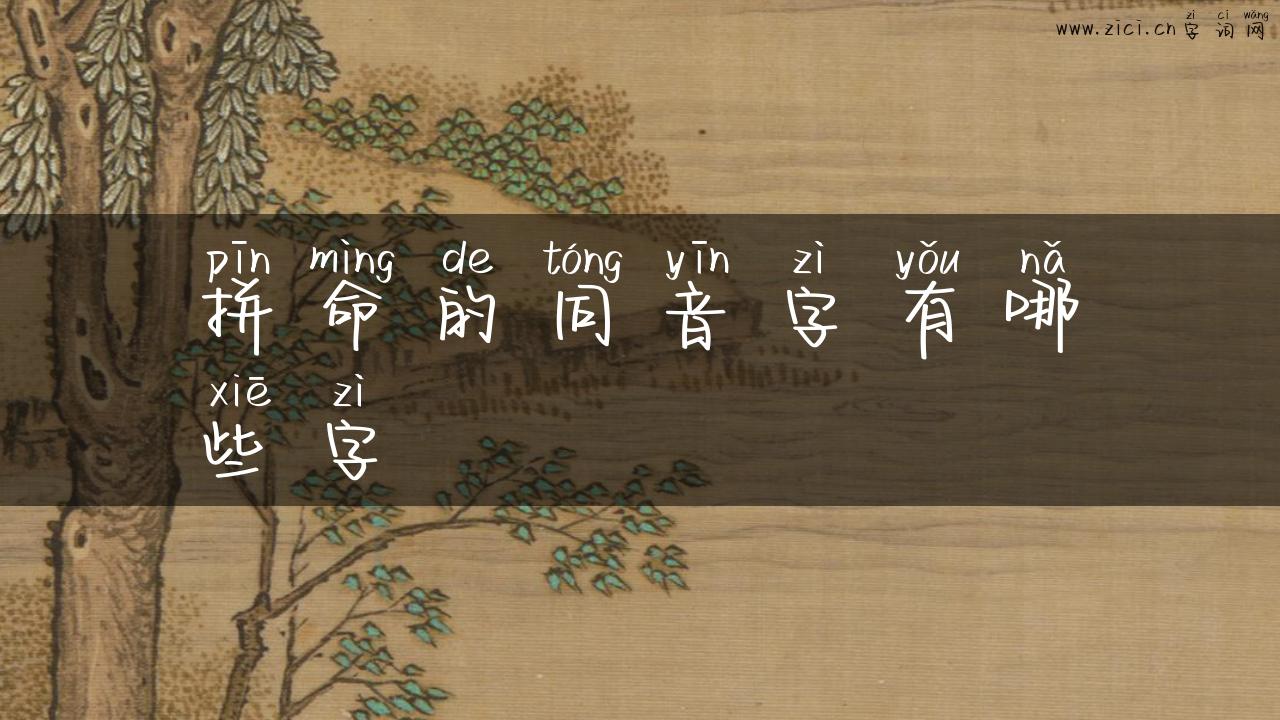 zì cí wǎng
www.zici.cn 字 词 网
pīn mìng de tóng yīn zì yǒu nǎ
拼 命 的 同 音 字 有 哪
xiē zì
些 字